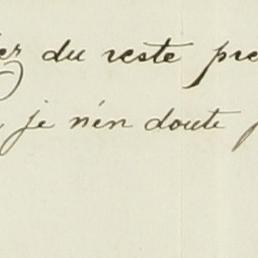 du reste
je n'en doute